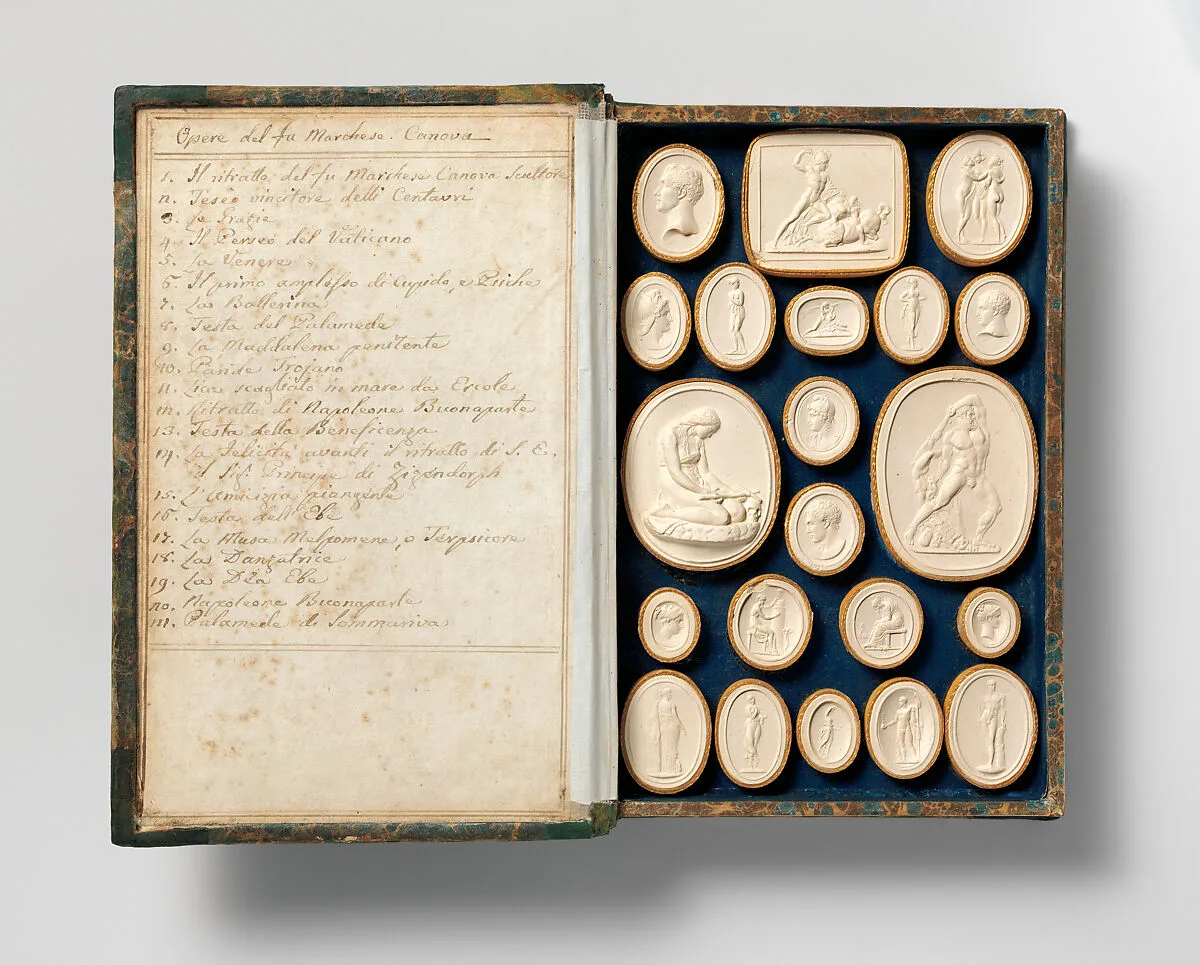 Opere del fu Marchese. Canova
1. Il ritratto del fu Marchese Canova Scultore
n. Teseo vincitore delli Centauri
3. Le Grazie
4. Il Perseo del Vaticano
5. La Venere
6. Il primo amplesso di Cupido, e Psiche
7. La Ballerina
8. Testa del Palamede
9. La Maddalena penitente
10. Paride Trojano
11. Lica scagliato in mare da Ercole
1n. Ritratto di Napoleone Buonaparte
13. Testa della Beneficenza
14. La Felicità avanti il ritratto di S. E.
il Sig. Principe di Zizendorph
15. L'Amicizia piangente
16. Testa dell'Ebe
17. La Musa Melpomene, o Terpsicore
18. La Danzatrice
19. La Dea Ebe
no. Napoleone Buonaparte
n1. Palamede di Sommariva